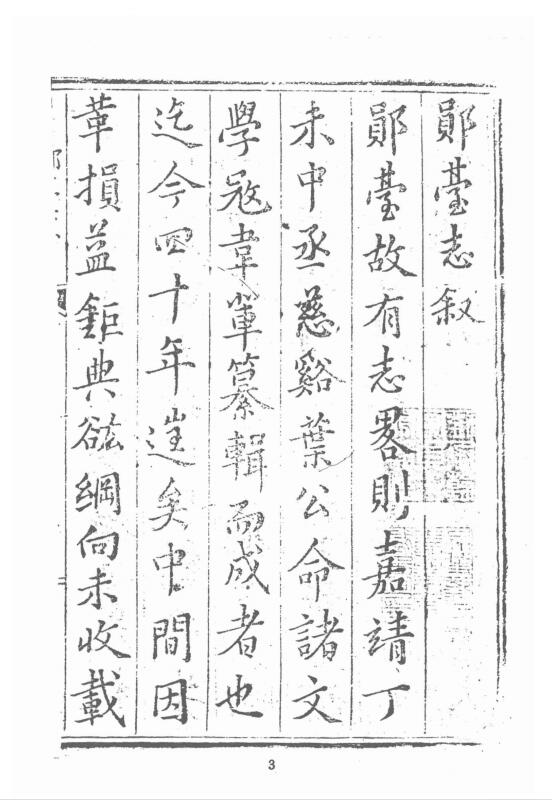 鄖臺志叙
鄖臺故有志畧則嘉靖丁
未中丞慈谿葉公命諸文
學冦韋軰纂輯而成者也
迄今四十年遑矣中間因
革損益鉅典鉉綱向未收載
3